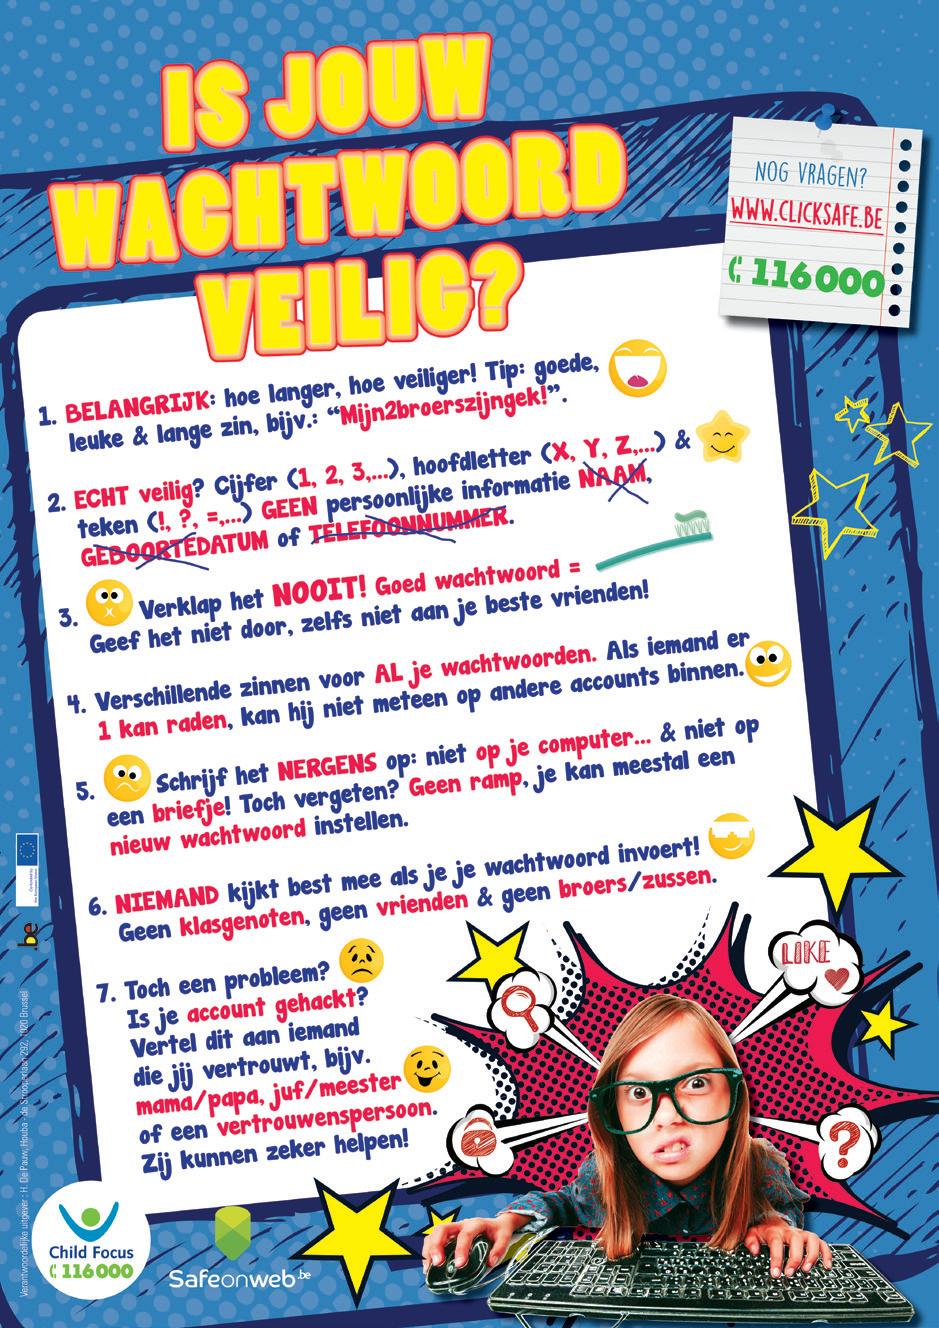 IS JOUW
WACHTWOORD
VEILIG?
NOG VRAGEN?
WWW.CLICKSAFE.BE
116 000
1. BELANGRIJK: hoe langer, hoe veiliger! Tip: goede,
leuke & lange zin, bijv.: “Mijn2broerszijngek!”.
2. ECHT veilig? Cijfer (1, 2, 3,...), hoofdletter (X, Y, Z,...) &
teken (!, ?, =,...) GEEN persoonlijke informatie NAAM,
GEBOORTEDATUM of TELEFOONNUMMER.
3. Verklap het NOOIT! Goed wachtwoord =
Geef het niet door, zelfs niet aan je beste vrienden!
4. Verschillende zinnen voor AL je wachtwoorden. Als iemand er
1 kan raden, kan hij niet meteen op andere accounts binnen.
5. Schrijf het NERGENS op: niet op je computer... & niet op
een briefje! Toch vergeten? Geen ramp, je kan meestal een
nieuw wachtwoord instellen.
6. NIEMAND kijkt best mee als je je wachtwoord invoert!
Geen klasgenoten, geen vrienden & geen broers/zussen.
7. Toch een probleem?
Is je account gehackt?
Vertel dit aan iemand
die jij vertrouwt, bijv.
mama/papa, juf/meester
of een vertrouwenspersoon.
Zij kunnen zeker helpen!
LIKE
?
.be
Verantwoordelijke uitgever : H. De Pauw, Houba - de Strooperlaan 292, 1020 Brussel
Child Focus
116 000
Safeonweb.be